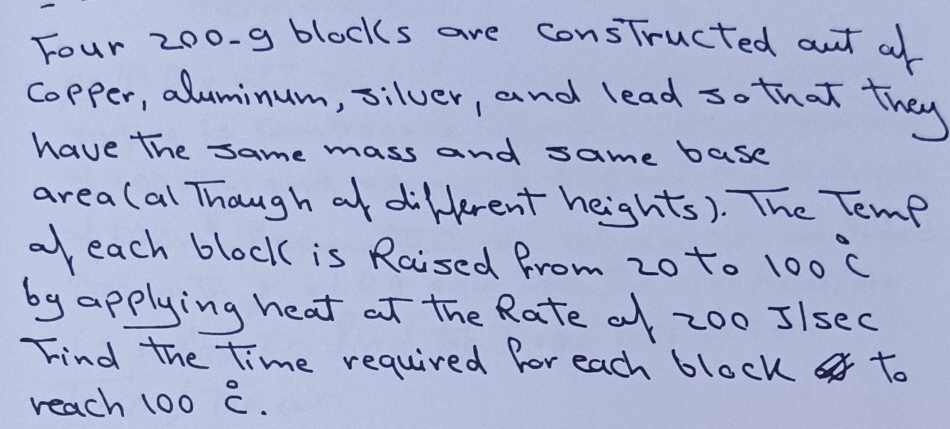 Four 200-g blocks are constructed out of
Copper, aluminum, silver, and lead so that they
have the same mass and same base
area (although of different heights). The Temp
of each block is Raised from 20 to 100 °C
by applying heat at the Rate of 200 J/sec
Find the time required for each block to
reach 100 °C.